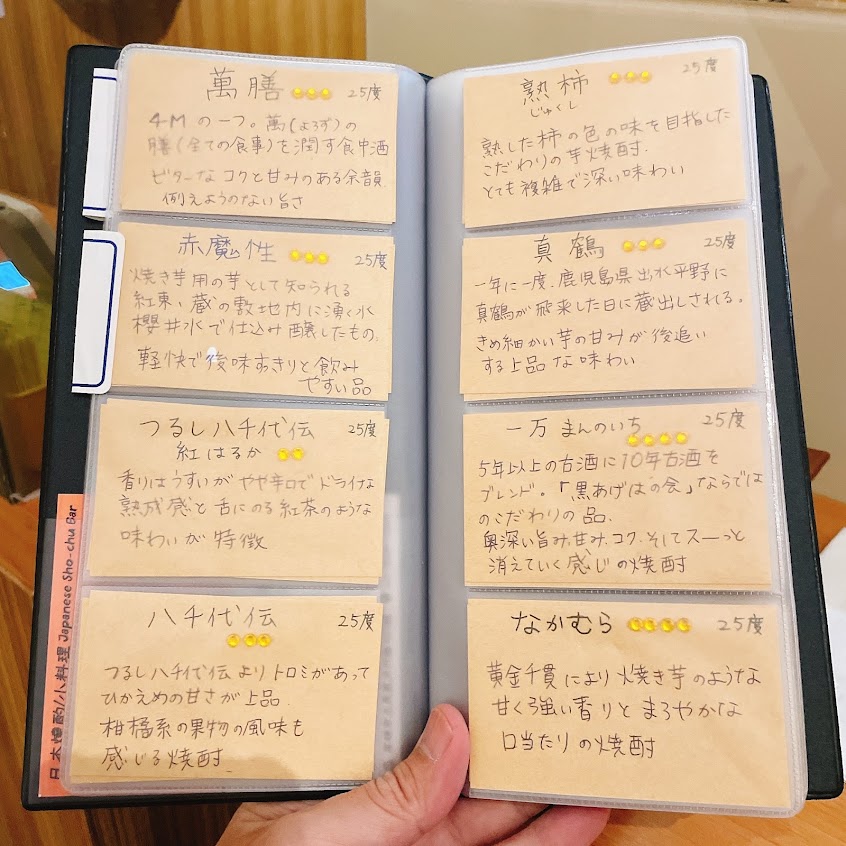 萬膳 25度
4Mの一つ。萬(よろず)の
膳(全ての食事)を潤す食中酒
ビターなコクと甘みのある余韻
例えようのない旨さ
赤魔性 25度
焼き芋用の芋として知られる
紅東、蔵の敷地内に湧く水
櫻井水で仕込み醸したもの。
軽快で後味すっきりと飲み
やすい品
つるし八千代伝 25度
紅はるか
香りはうすいがやや辛口でドライな
熟成感と舌にのる紅茶のような
味わいが特徴
八千代伝 25度
つるし八千代伝よりトロミがあって
ひかえめの甘さが上品
柑橘系の果物の風味も
感じる焼酎
熟柿 25度
じゅくし
熟した柿の色の味を目指した
こだわりの芋焼酎.
とても複雑で深い味わい
真鶴 25度
一年に一度、鹿児島県出水平野に
真鶴が飛来した日に蔵出しされる。
きめ細かい芋の甘みが後追い
する上品な味わい
一万 まんのいち 25度
5年以上の古酒に10年古酒を
ブレンド。「黒あげはの会」ならでは
のこだわりの品.
奥深い旨み、甘み、コク、そしてスーっと
消えていく感じの焼酎
なかむら 25度
黄金千貫により焼き芋のような
甘く強い香りとまろやかな
口当たりの焼酎
日本焼酎/小料理 Japanese Sho-chu Bar